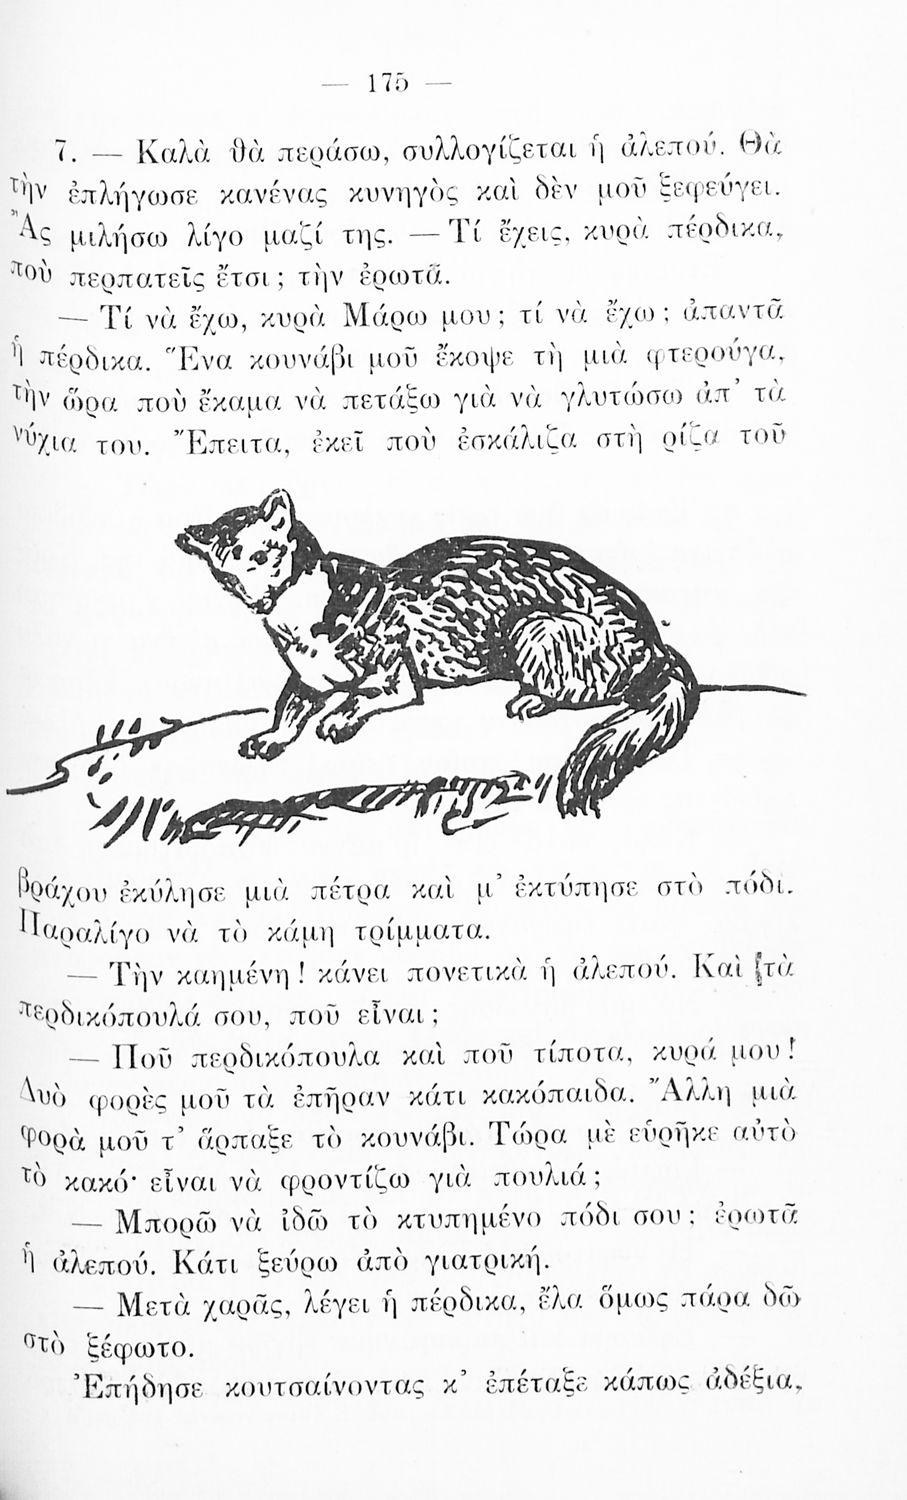 — 175 —
7. — Καλὰ θὰ περάσω, συλλογίζεται ἡ ἀλεπού. Θὰ
τὴν ἐπλήγωσε κανένας κυνηγὸς καὶ δὲν μοῦ ξεφεύγει.
Ἂς μιλήσω λίγο μαζί της. — Τί ἔχεις, κυρὰ πέρδικα,
ποὺ περπατεῖς ἔτσι ; τὴν ἐρωτᾶ.
— Τί νὰ ἔχω, κυρὰ Μάρω μου ; τί νὰ ἔχω ; ἀπαντᾶ
ἡ πέρδικα. Ἕνα κουνάβι μοῦ ἔκοψε τὴ μιὰ φτερούγα,
τὴν ὥρα ποὺ ἔκαμα νὰ πετάξω γιὰ νὰ γλυτώσω ἀπ’ τὰ
νύχια του. Ἔπειτα, ἐκεῖ ποὺ ἐσκάλιζα στὴ ρίζα τοῦ
βράχου ἐκύλησε μιὰ πέτρα καὶ μ’ ἐκτύπησε στὸ πόδι.
Παραλίγο νὰ τὸ κάμη τρίμματα.
— Τὴν καημένη ! κάνει πονετικὰ ἡ ἀλεπού. Καὶ τὰ
περδικόπουλά σου, ποῦ εἶναι ;
— Ποῦ περδικόπουλα καὶ ποῦ τίποτα, κυρά μου !
Δυὸ φορὲς μοῦ τὰ ἐπῆραν κάτι κακόπαιδα. Ἄλλη μιὰ
φορὰ μοῦ τ’ ἅρπαξε τὸ κουνάβι. Τώρα μὲ εὑρῆκε αὐτὸ
τὸ κακό· εἶναι νὰ φροντίζω γιὰ πουλιά ;
— Μπορῶ νὰ ἰδῶ τὸ κτυπημένο πόδι σου ; ἐρωτᾶ
ἡ ἀλεπού. Κάτι ξεύρω ἀπὸ γιατρική.
— Μετὰ χαρᾶς, λέγει ἡ πέρδικα, ἔλα ὅμως πάρα δῶ
στὸ ξέφωτο.
Ἐπήδησε κουτσαίνοντας κ’ ἐπέταξε κάπως ἀδέξια,